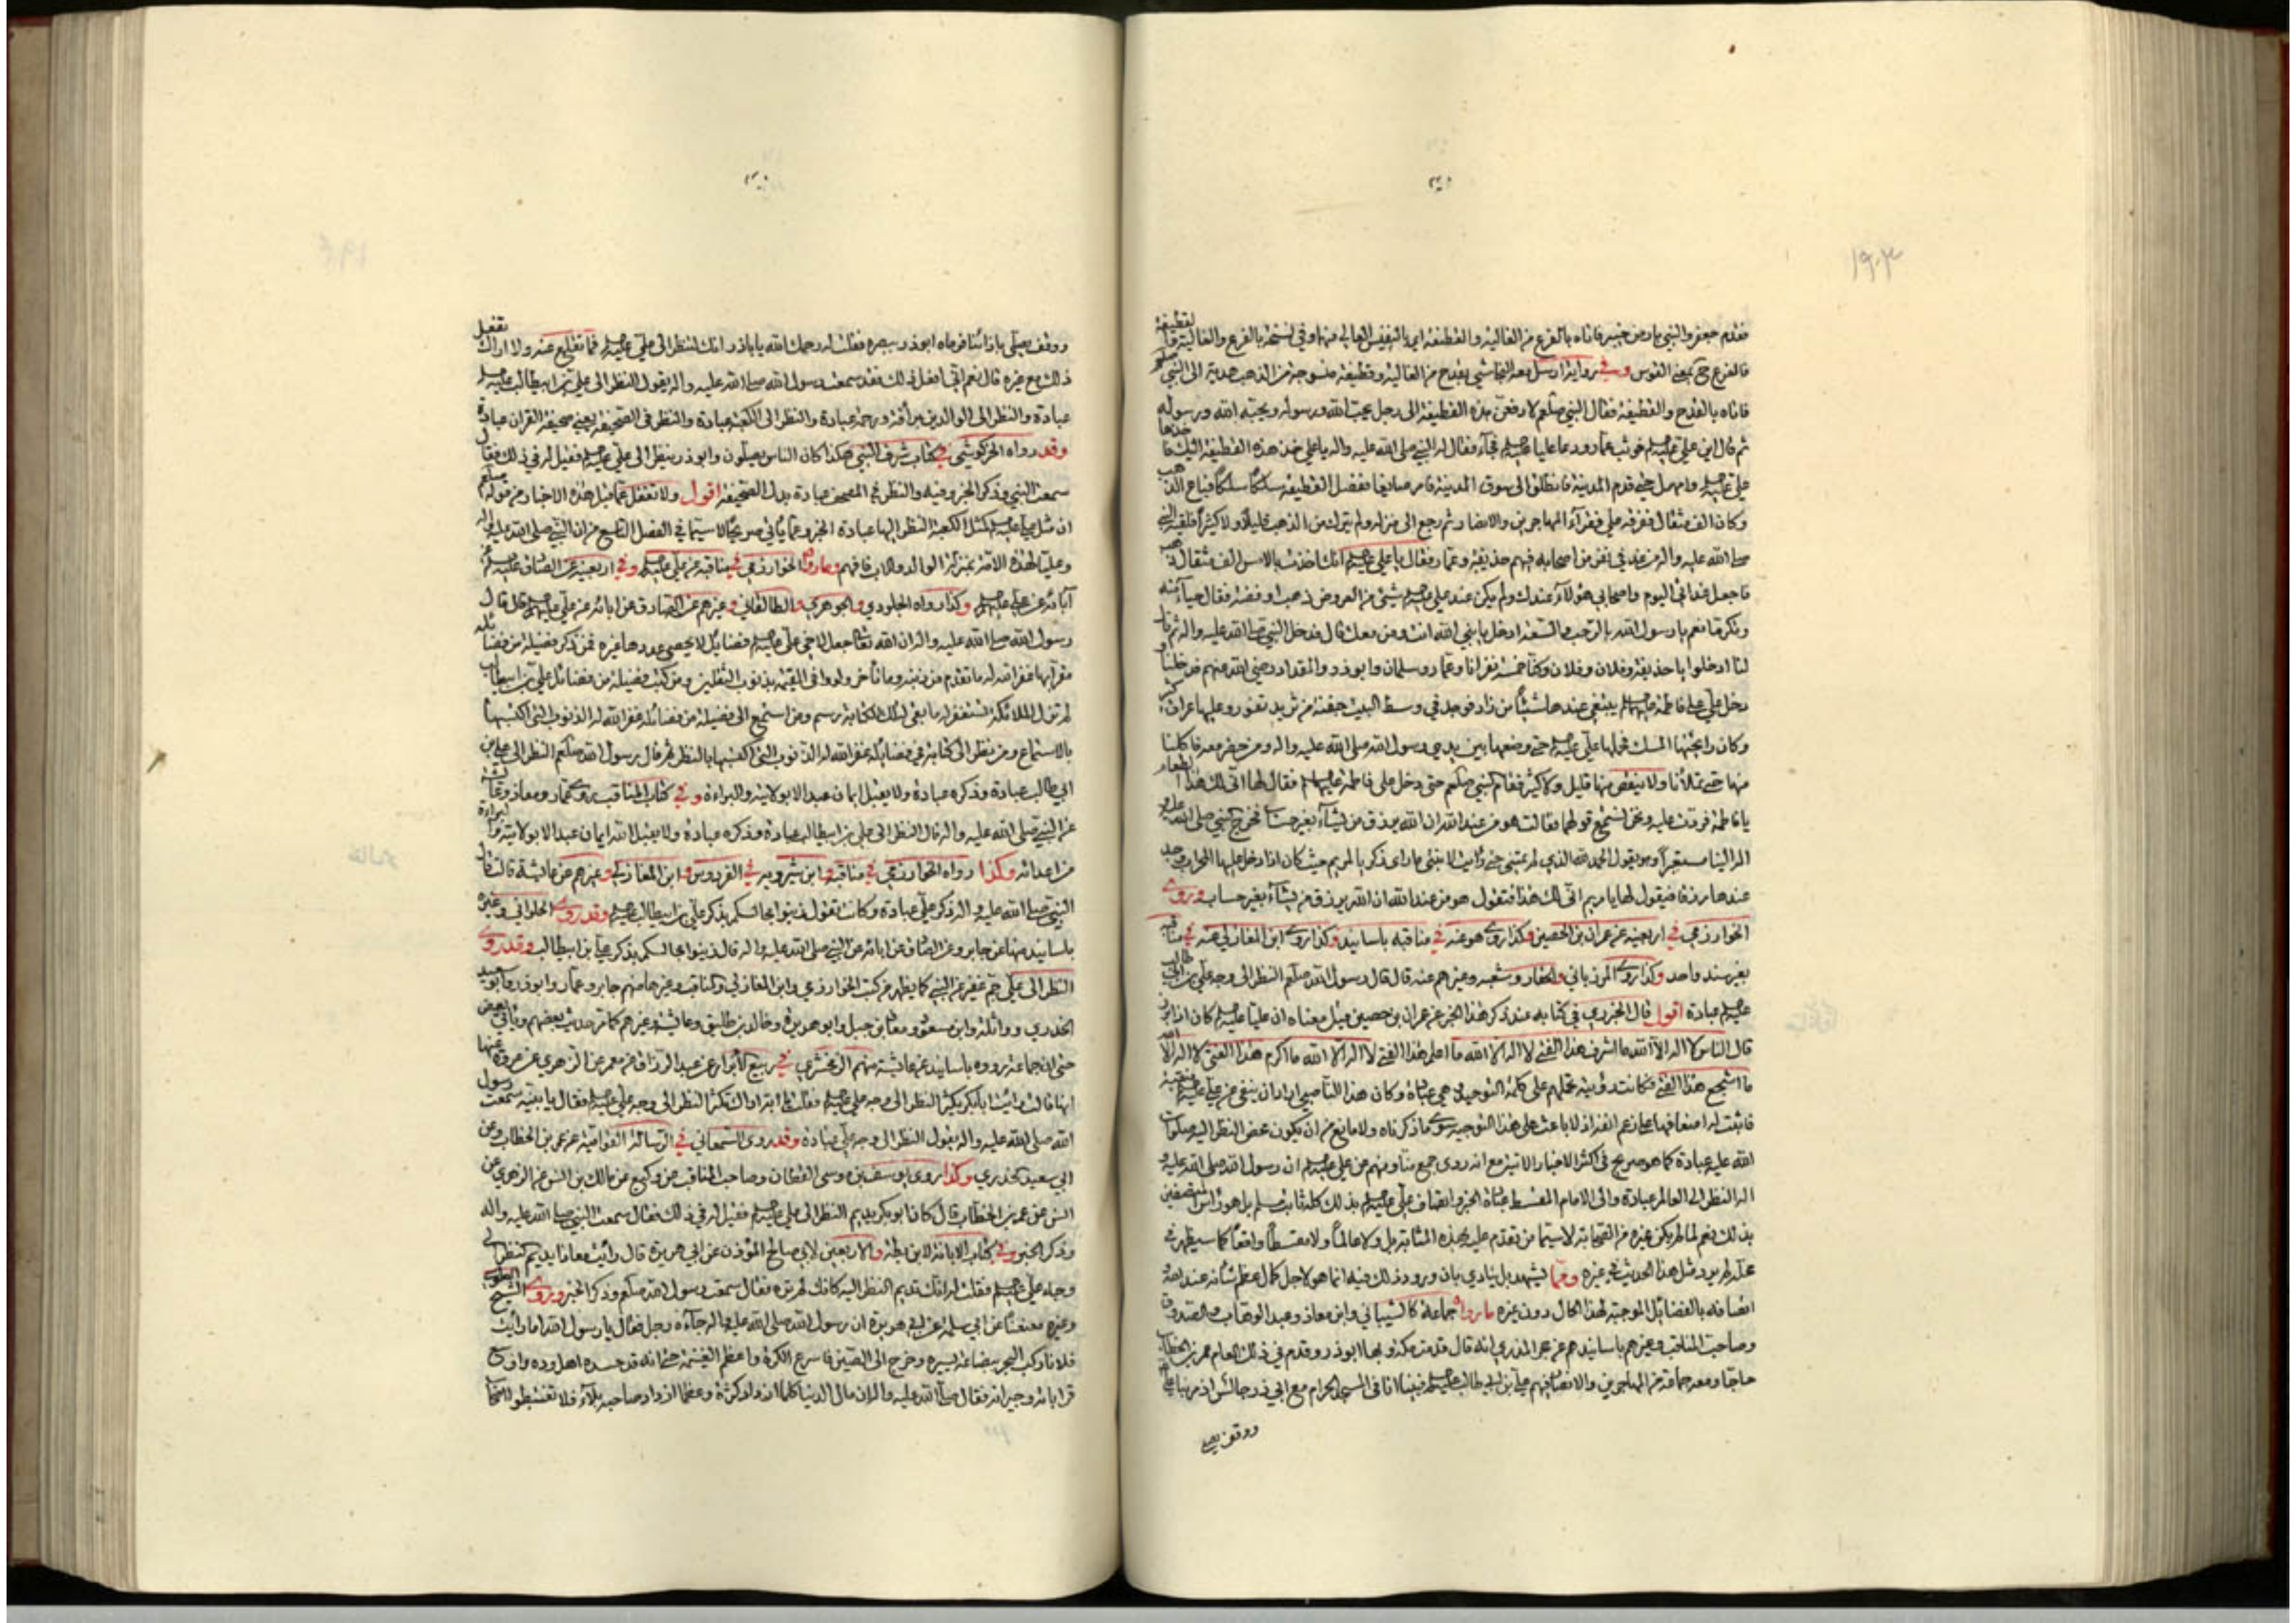 ١٩٠٣
فقدم جعفر والنبي بارض خيبر فاتاه بالفرع من الغالية والقطيفة
فالفرع ح بمعنى القوس وفي رواية ارسل معه النجاشي بقدح من الغالية وقطيفة منسوجة من الذهب هدية الى النبي صلعم
فاتاه بالقدح والقطيفة فقال النبي صلعم لادفعن هذه القطيفة الى رجل يحب الله ورسوله ويحبه الله ورسوله
ثم قال اين علي فوثب عمار ودعا عليا فجاء فقال له النبي صلى الله عليه واله يا علي خذ هذه القطيفة اليك
علي وامهل حتى قدم المدينة فانطلق الى سوق المدينة فامر صايغا ففصل القطيفة سلكا سلكا فباع الذهب
وكان الف مثقال ففرقه على فقراء المهاجرين والانصار ثم رجع الى منزله ولم يترك من الذهب قليلا ولا كثيرا فلقيه النبي
صلى الله عليه واله من غد في نفر من اصحابه فيهم حذيفة وعمار فقال يا علي انك اخذت بالامس الف مثقال ذهب
فاجعل غدائي اليوم واصحابي هؤلاء عندك ولم يكن عند علي شيء من العروض ذهب او فضة فقال حياء منه
وتكرما نعم يا رسول الله بالرحب والسعة ادخل يا نبي الله انت ومن معك قال فدخل النبي صلى الله عليه واله ثم قال
لنا ادخلوا يا حذيفة وفلان وفلان وكنا خمسة نفر انا وعمار وسلمان وابوذر والمقداد رضي الله عنهم فدخلنا
دخل علي على فاطمة يبتغي عندها شيئا من زاد فوجد في وسط البيت جفنة من ثريد تفور وعليها عراق كثير
وكان رايحتها المسك فحملها علي حتى وضعها بين يدي رسول الله صلى الله عليه واله ومن حضر معه فاكلنا
منها حتى تملأنا ولا ينقص منها قليل ولا كثير فقام النبي صلعم حتى دخل على فاطمة فقال لها انى لك هذا الطعام
يا فاطمة فردت عليه ونحن نسمع قولهما فقالت هو من عند الله ان الله يرزق من يشاء بغير حساب فخرج النبي صلى الله
الينا مستعبرا وهو يقول الحمد لله الذي لم يمتني حتى رايت لابنتي ما راى زكريا لمريم حيث كان اذا دخل عليها المحراب وجد
عندها رزقا فيقول لها يا مريم انى لك هذا فتقول هو من عند الله ان الله يرزق من يشاء بغير حساب وروى
الخوارزمي في اربعينه عن عمران بن الحصين وكذا روى هو عنه في مناقبه باسانيد وكذا روى ابن المغازلي عنه في
بغير سند واحد وكذا روى المرزباني والحفار وشعبه وغيرهم عنه قال قال رسول الله صلعم النظر الى وجه علي بن ابي طالب
عبادة اقول قال الجزري في كتابه عند ذكر هذا الخبر عن عمران بن حصين قيل معناه ان عليا كان اذا برز
قال الناس لا اله الا الله ما اشرف هذا الفتى لا اله الا الله ما اعلم هذا الفتى لا اله الا الله ما اكرم هذا الفتى لا اله الا الله
ما اشجع هذا الفتى فكانت رؤيته تحملهم على كلمة التوحيد وكان هذا الناصبي اراد ان ينفي عن علي
فاثبت له اضعافها على زعم لا باعث على هذا التوجيه سوى ما ذكرناه ولا مانع من ان يكون محض النظر اليه صلوات
الله عليه عبادة كما هو صريح في اكثر الاخبار الاتية مع انه روى جمع منا ومنهم عن علي ان رسول الله صلى الله عليه و
اله النظر الى العالم عبادة والى الامام المقسط عبادة الخبر واتصاف علي بذلك كله ثابت مسلم بل هو راس المتصفين
بذلك نعم لما لم يكن غيره من الصحابة لاسيما من تقدم عليه بهذه المثابة بل ولا عالما ولا مقسطا واقعا كما سيظهر في
محله لم يرد مثل هذا الحديث في غيره ومما يشهد بل ينادي بان ورود ذلك فيه انما هو لاجل كمال عظم شانه عند الله و
اتصافه بالفضائل الموجبة لهذا الكمال دون غيره ما رواه جماعة كالشيباني وابن معاذ وعبد الوهاب والصدوق
وصاحب المناقب وغيرهم باسانيدهم عن حجر المدري انه قال قدمت مكة وبها ابوذر وقدم في ذلك العام عمر بن الخطاب
حاجا ومعه جماعة من المهاجرين والانصار فيهم علي بن ابي طالب فبينا انا في المسجد الحرام مع ابي ذر جالس اذ مر بنا علي
ووقف يصلي
ووقف يصلي بازائنا فرماه ابوذر ببصره فقلت له رحمك الله يا باذر انك لتنظر الى علي فما تقلع عنه ولا اراك تفعل
ذلك مع غيره قال نعم اني افعل ذلك فقد سمعت رسول الله صلى الله عليه واله يقول النظر الى علي بن ابيطالب
عبادة والنظر الى الوالدين برأفة ورحمة عبادة والنظر الى الكعبة عبادة والنظر في الصحيفة يعني صحيفة القران عبادة
وقد رواه الخركوشي في كتاب شرف النبي هكذا كان الناس يصلون وابوذر ينظر الى علي فقيل له في ذلك فقال
سمعت النبي وذكر الخبر وفيه والنظر في المصحف عبادة بدل الصحيفة اقول ولا تغفل عما قبل هذه الاخبار من قوله صلعم
ان مثل علي كمثل الكعبة النظر اليها عبادة الخبر وعما ياتي صريحا لاسيما في الفصل التاسع من ان النبي صلى الله عليه واله
وعليا لهذه الامة بمنزلة الوالد والاب فافهم وما رواه الخوارزمي في مناقبه عن علي وفي اربعينه عن الصادق عن
آبائه عن علي وكذا رواه الجلودي والجوهري والطالقاني وغيرهم عن الصادق عن ابائه عن علي قال قال
رسول الله صلى الله عليه واله ان الله تعالى جعل لاخي علي فضائل لا يحصي عددها غيره فمن ذكر فضيلة من فضائله
مقرا بها غفر الله له ما تقدم من ذنبه وما تاخر ولو وافى القيمة بذنوب الثقلين ومن كتب فضيلة من فضائل علي بن ابيطالب
لم تزل الملائكة تستغفر له ما بقي لتلك الكتابة رسم ومن استمع الى فضيلة من فضائله غفر الله له الذنوب التي اكتسبها
بالاستماع ومن نظر الى كتابة في فضائله غفر الله له الذنوب التي اكتسبها بالنظر ثم قال رسول الله صلعم النظر الى علي بن
ابي طالب عبادة وذكره عبادة ولا يقبل ايمان عبد الا بولايته والبراءة وفي كتاب المناقب عن عمار ومعاذ وعائشة
عن النبي صلى الله عليه واله قال النظر الى علي بن ابيطالب عبادة وذكره عبادة ولا يقبل الله ايمان عبد الا بولايته والبراءة
من اعدائه وكذا رواه الخوارزمي في مناقبه وابن شيرويه في الفردوس وابن المغازلي وغيرهم عن عائشة قالت قال
النبي صلى الله عليه واله ذكر علي عبادة وكانت تقول زينوا مجالسكم بذكر علي بن ابيطالب وقد روى الحلواني وغيره
باسانيد منها عن جابر وعن الصادق عن ابائه عن النبي صلى الله عليه واله قال زينوا مجالسكم بذكر علي بن ابيطالب وقد روى
النظر الى علي جم غفير عن النبي كما يظهر من كتب الخوارزمي وابن المغازلي والمناقب وغيرها منهم جابر وعمار وابوذر وابوسعيد
الخدري وواثلة وابن مسعود ومعاذ بن جبل وابو هريرة وخالد بن طليق وعائشة وغيرهم كما مر حديث بعضهم وياتي البعض
حتى ان جماعة رووه باسانيد عن عائشة منهم الزمخشري في ربيع الابرار عن عبد الرزاق عن معمر عن الزهري عن عروة عنها
انها قالت رايت ابابكر يكثر النظر الى وجه علي فقلت يا ابه اراك تكثر النظر الى وجه علي فقال يا بنية سمعت رسول
الله صلى الله عليه واله يقول النظر الى وجه علي عبادة وقد روى السمعاني في الرسالة القوامية عن عمر بن الخطاب وعن
ابي سعيد الخدري وكذا روى يوسف بن موسى القطان وصاحب المناقب عن وكيع عن مالك بن انس عن الزهري عن
انس عن عمر بن الخطاب قال كان ابو بكر يديم النظر الى علي فقيل له في ذلك فقال سمعت النبي صلى الله عليه واله
وذكر الخبر وفي كتاب الابانة لابن بطة والاربعين لابي صالح المؤذن عن ابي هريرة قال رايت معاذا يديم النظر الى
وجه علي فقلت له انك تديم النظر اليه كانك لم تره فقال سمعت رسول الله صلعم وذكر الخبر وروى الشيخ الطوسي
وغيره معنعنا عن ابي سلمة عن ابي هريرة ان رسول الله صلى الله عليه واله جاءه رجل فقال يا رسول الله اما رايت
فلانا ركب البحر ببضاعة يسيرة وخرج الى الصين فاسرع الكرة واعظم الغنيمة حتى انه قد حسده اهل وده واوسع
قراباته وجيرانه فقال صلى الله عليه واله ان مال الدنيا كلما ازداد كثرة وعظما ازداد صاحبه بلاء فلا تغتبطوا